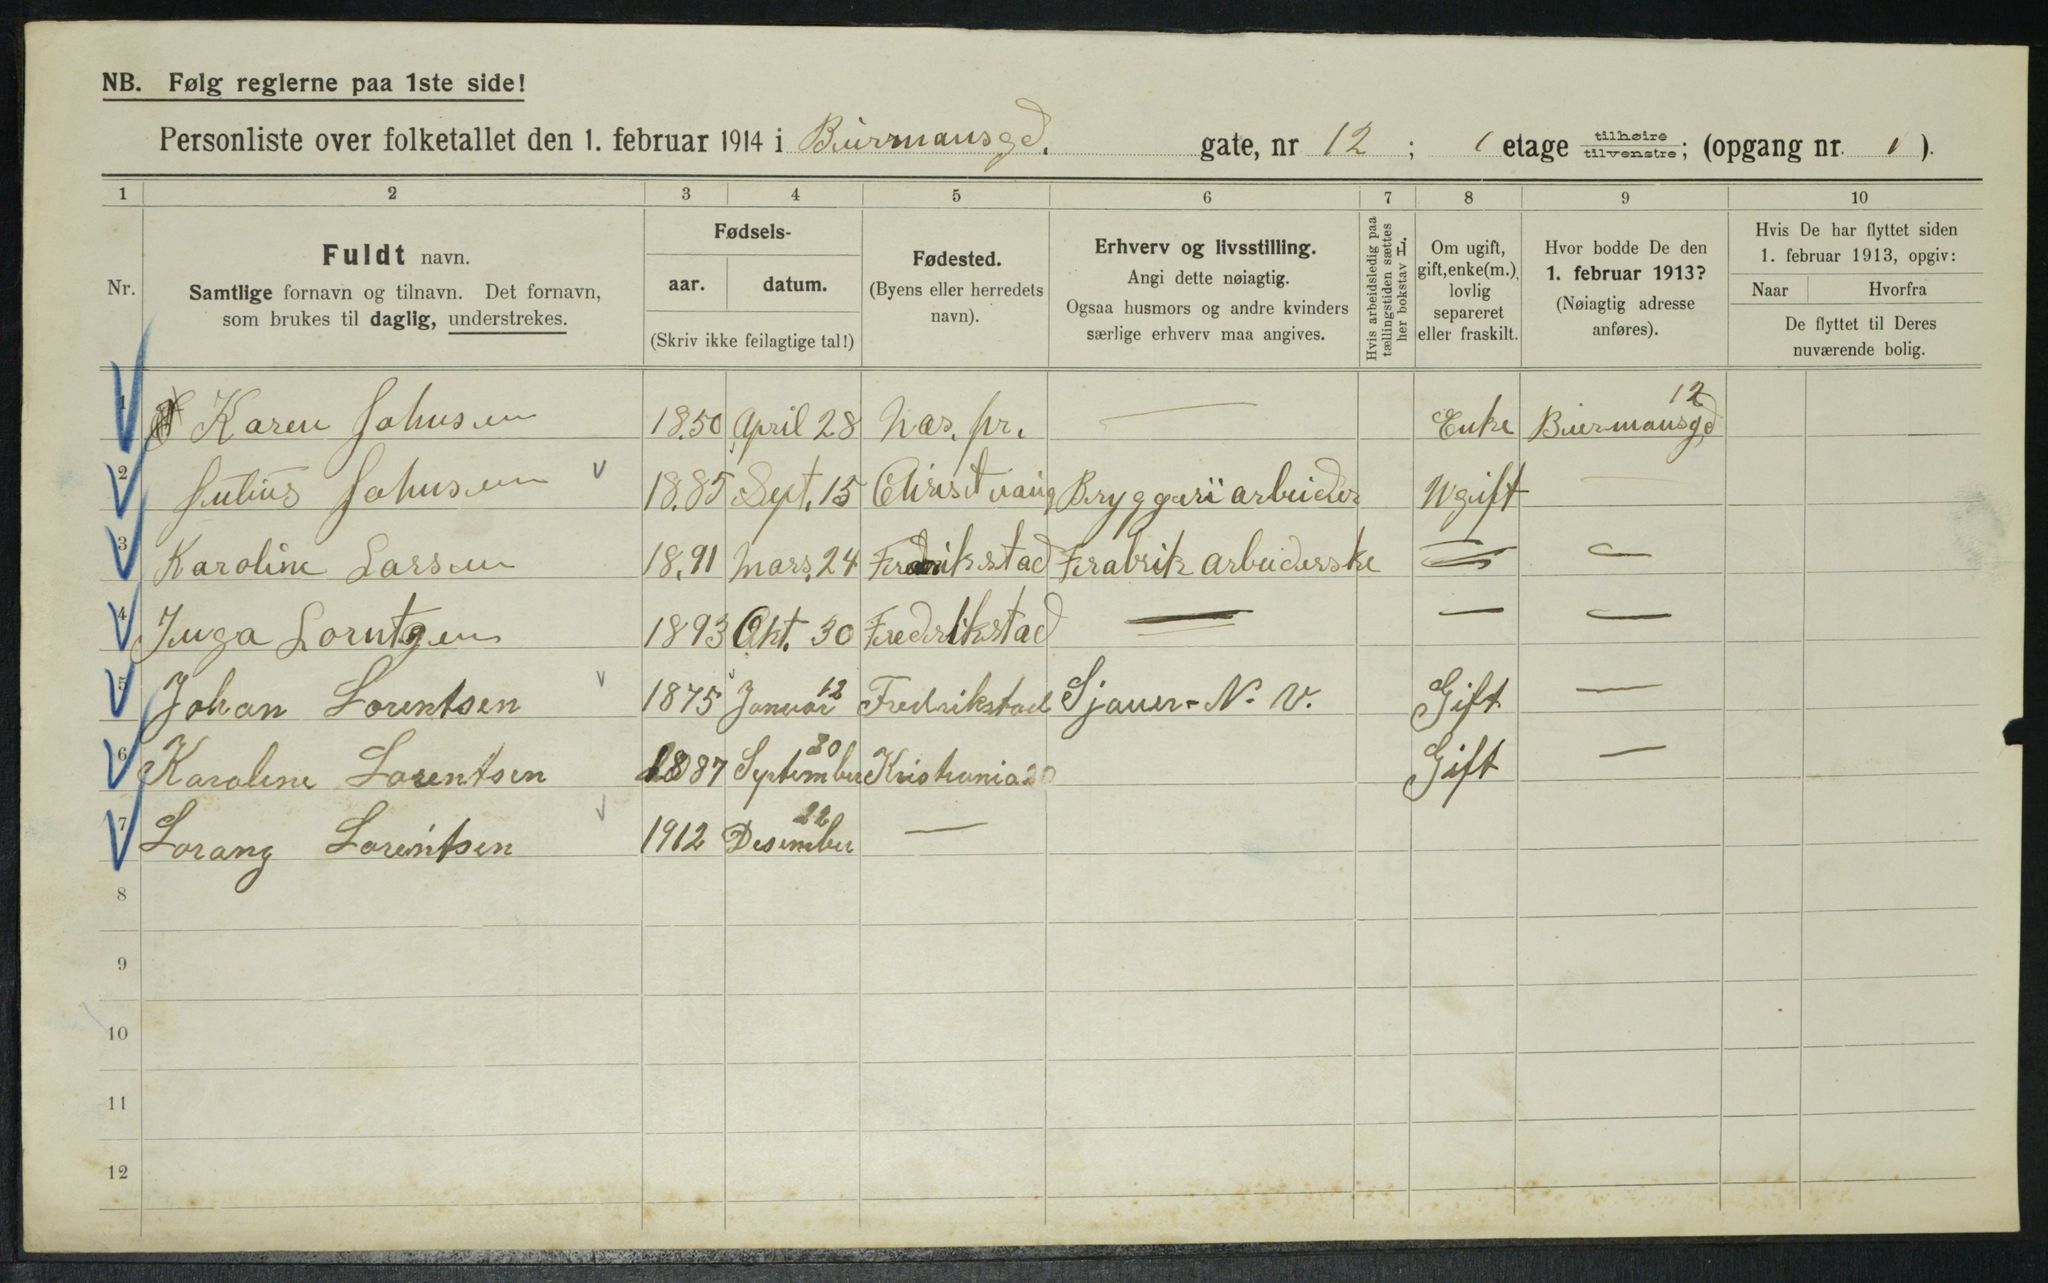 NB. Følg reglerne paa 1ste side!
Personliste over folketallet den 1. februar 1914 i Biermansgd. gate, nr 12 ; 1 etage tilhøire/tilvenstre; (opgang nr. 1 ).
1 2 3 4 5 6 7 8 9 10
Nr.
Fuldt navn.
Samtlige fornavn og tilnavn. Det fornavn,
som brukes til daglig, understrekes.
Fødsels-
aar. datum.
(Skriv ikke feilagtige tal!)
Fødested.
(Byens eller herredets
navn).
Erhverv og livsstilling.
Angi dette nøiagtig.
Ogsaa husmors og andre kvinders
særlige erhverv maa angives.
Hvis arbeidsledig paa
tællingstiden sættes
her bokstav L.
Om ugift,
gift, enke(m.),
lovlig
separeret
eller fraskilt.
Hvor bodde De den
1. februar 1913?
(Nøiagtig adresse
anføres).
Hvis De har flyttet siden
1. februar 1913, opgiv:
Naar Hvorfra
De flyttet til Deres
nuværende bolig.
1 Karen Johnsen 1850 April 28 Næs. pr. — Enke Biermansgd 12
2 Julius Johnsen 1885 Sept. 15 Christiania Bryggeri arbeider Ugift —
3 Karoline Larsen 18,91 Mars. 24 Fredrikstad Frabrik arbeiderske — —
4 Inga Lorntzen 1893 Okt. 30 Fredrikstad — — —
5 Johan Lorentsen 1875 Januar 12 Fredrikstad Sjauer - N. V. Gift —
6 Karoline Lorentsen 1887 September 20 Kristiania 20 Gift —
7 Lorang Lorentsen 1912 Desember 22 —
8
9
10
11
12